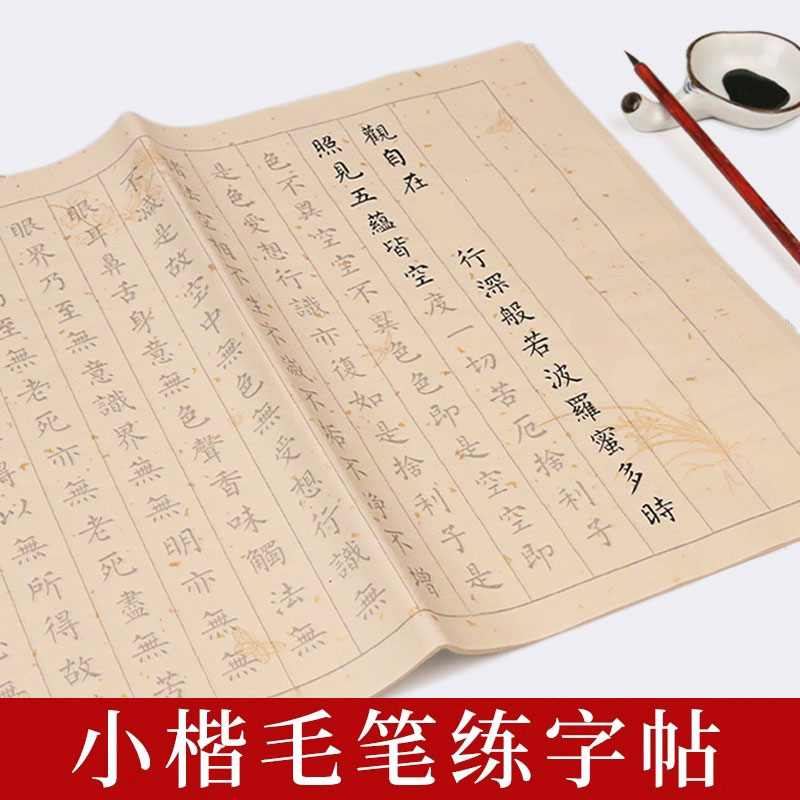 觀自在 行深般若波羅蜜多時
照見五蘊皆空度一切苦厄捨利子
色不異空空不異色色即是空空即
是色受想行識亦復如是捨利子是
空相不生不滅不垢不淨不增
不減是故空中無色無受想行識無
眼耳鼻舌身意無色聲香味觸法無
眼界乃至無意識界無無明亦無
乃至無老死亦無老死盡無苦
得以無所得故
小楷毛笔练字帖